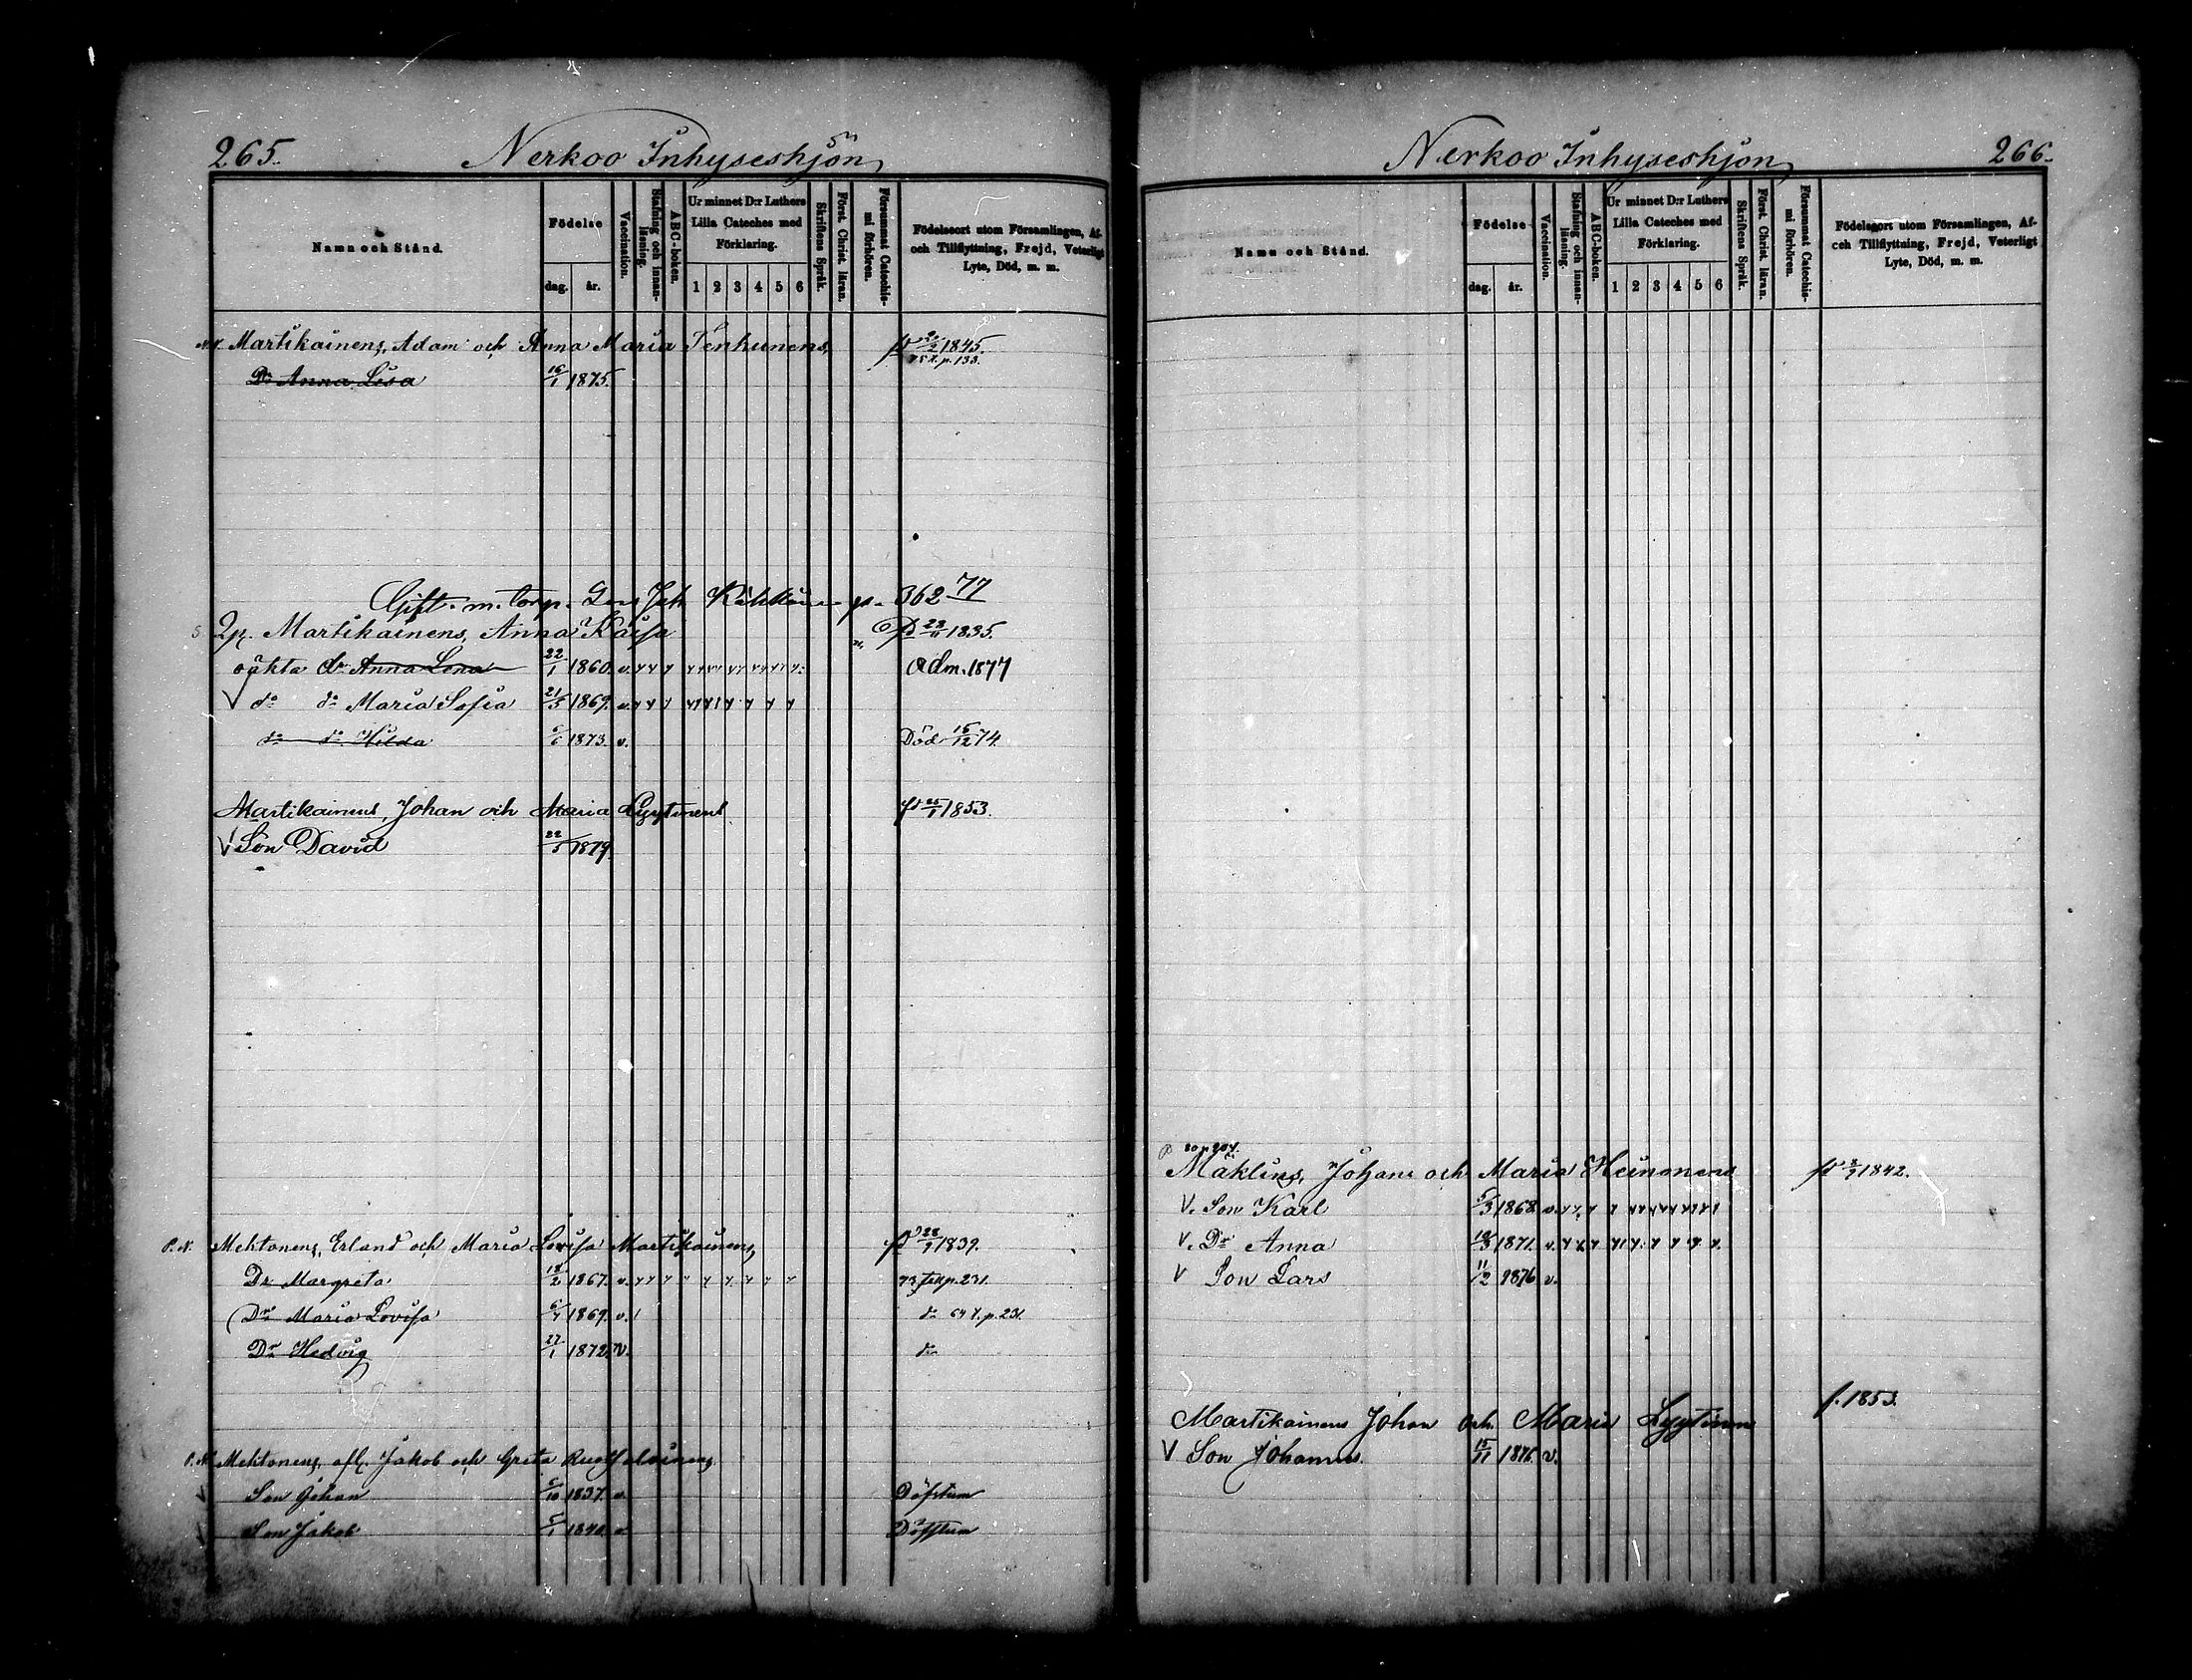 265.
Nerkoo Inhyseshjon
Namn och Stånd.
Födelse
dag.
år.
Vaccination.
Stafning och innan-
läsning.
ABC-boken.
Ur minnet D:r Luthers
Lilla Cateches med
Förklaring.
1 2 3 4 5 6
Skriftens Språk.
Först. Christ. läran.
Försummat Catechis-
mi förhören.
Födelseort utom Församlingen, Af-
och Tillflyttning, Frejd, Veterligt
Lyte, Död, m. m.
Martikainens, Adam och Anna Maria Tenhunens, 1845.
p. 133.
Dr Anna Lisa 16/1 1875.
Gift m. torp. Joh p. 362 77
Martikainens, Anna Kaisa fd 23/11 1835.
oäkta dr Anna Lena 22/1 1860. v. Adm. 1877
V do do Maria Sofia 21/5 1869. v.
do do Hilda 6/6 1873. v. Död 16/12 74.
Martikainens, Johan och Maria Lyytinens fd 25/1 1853.
V Son David 22/5 1879
P. N. Mehtonens, Erland och Maria Lovisa Martikainens, fd 28/1 1839.
Dr Margreta 18/2 1867. v. 73 p. 231
Dr Maria Lovisa 6/4 1869. v. do p. 231.
Dr Hedvig 27/1 1872. v. do
Mehtonens, afl. Jakob och Greta
Son Johan 5/10 1837. v. Döfstum
Son Jakob 5/1 1840. v. Döfstum
Nerkoo Inhyseshjon
266.
Namn och Stånd.
Födelse
dag.
år.
Vaccination.
Stafning och innan-
läsning.
ABC-boken.
Ur minnet D:r Luthers
Lilla Cateches med
Förklaring.
1 2 3 4 5 6
Skriftens Språk.
Först. Christ. läran.
Försummat Catechis-
mi förhören.
Födelseort utom Församlingen, Af-
och Tillflyttning, Frejd, Veterligt
Lyte, Död, m. m.
Mäklins, Johan och Maria Heinonens fd 1842.
V. Son Karl 5/3 1868 v.
V. Dr Anna 18/3 1871. v.
V Son Lars 11/2 1876 v.
Martikainens Johan och Maria Lyytinen f. 1853.
V Son Johannes 15/11 1876. v.